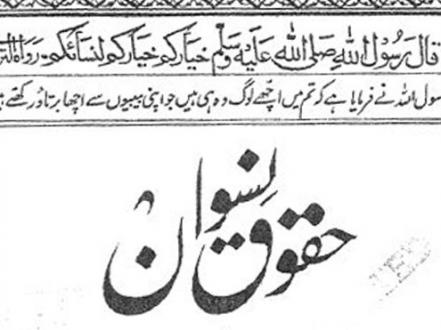 قال رسول الله صلى الله عليه وسلم خياركم خياركم لنسائكم رواه
رسول اللہ نے فرمایا ہے کہ تم میں اچھے لوگ وہ ہی ہیں جو اپنی بیبیوں سے اچھا برتاؤ رکھتے
حقوق نسوان